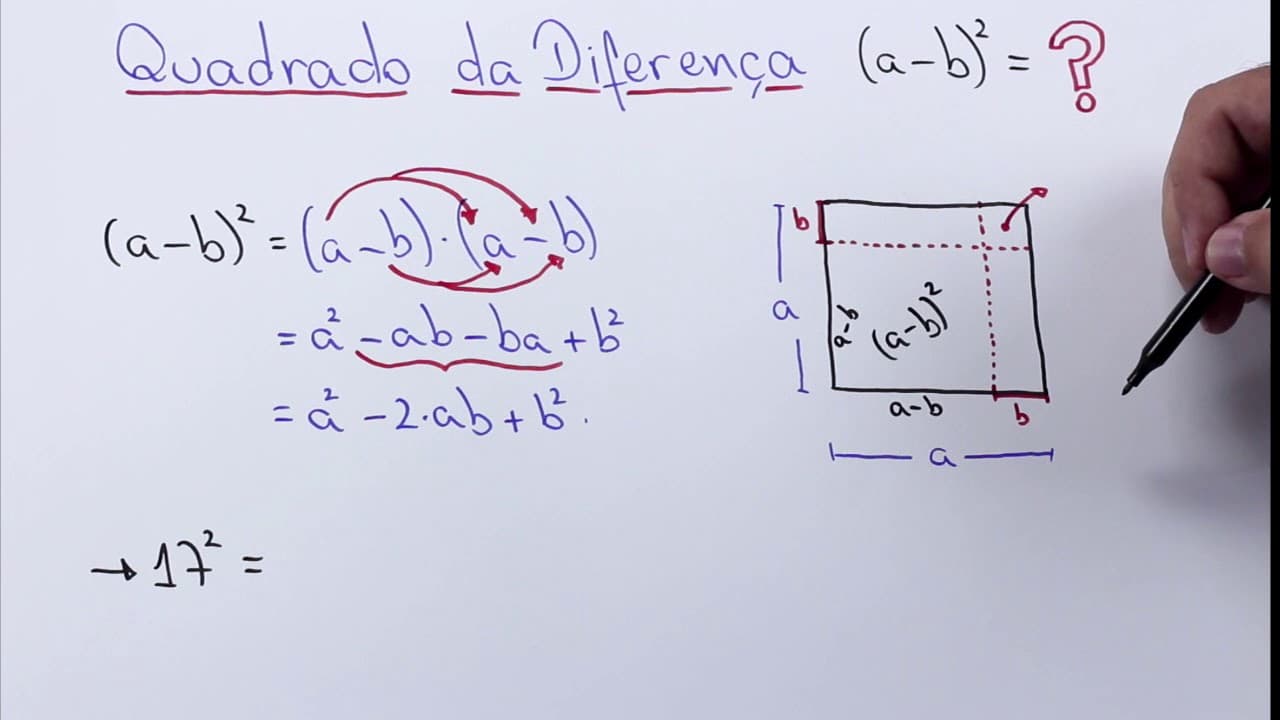 Quadrado da Diferença (a-b)² = ?
(a-b)² = (a-b)·(a-b)
= a² - ab - ba + b²
= a² - 2·ab + b².
b
a
a-b
(a-b)²
a-b
b
a
→ 17² =